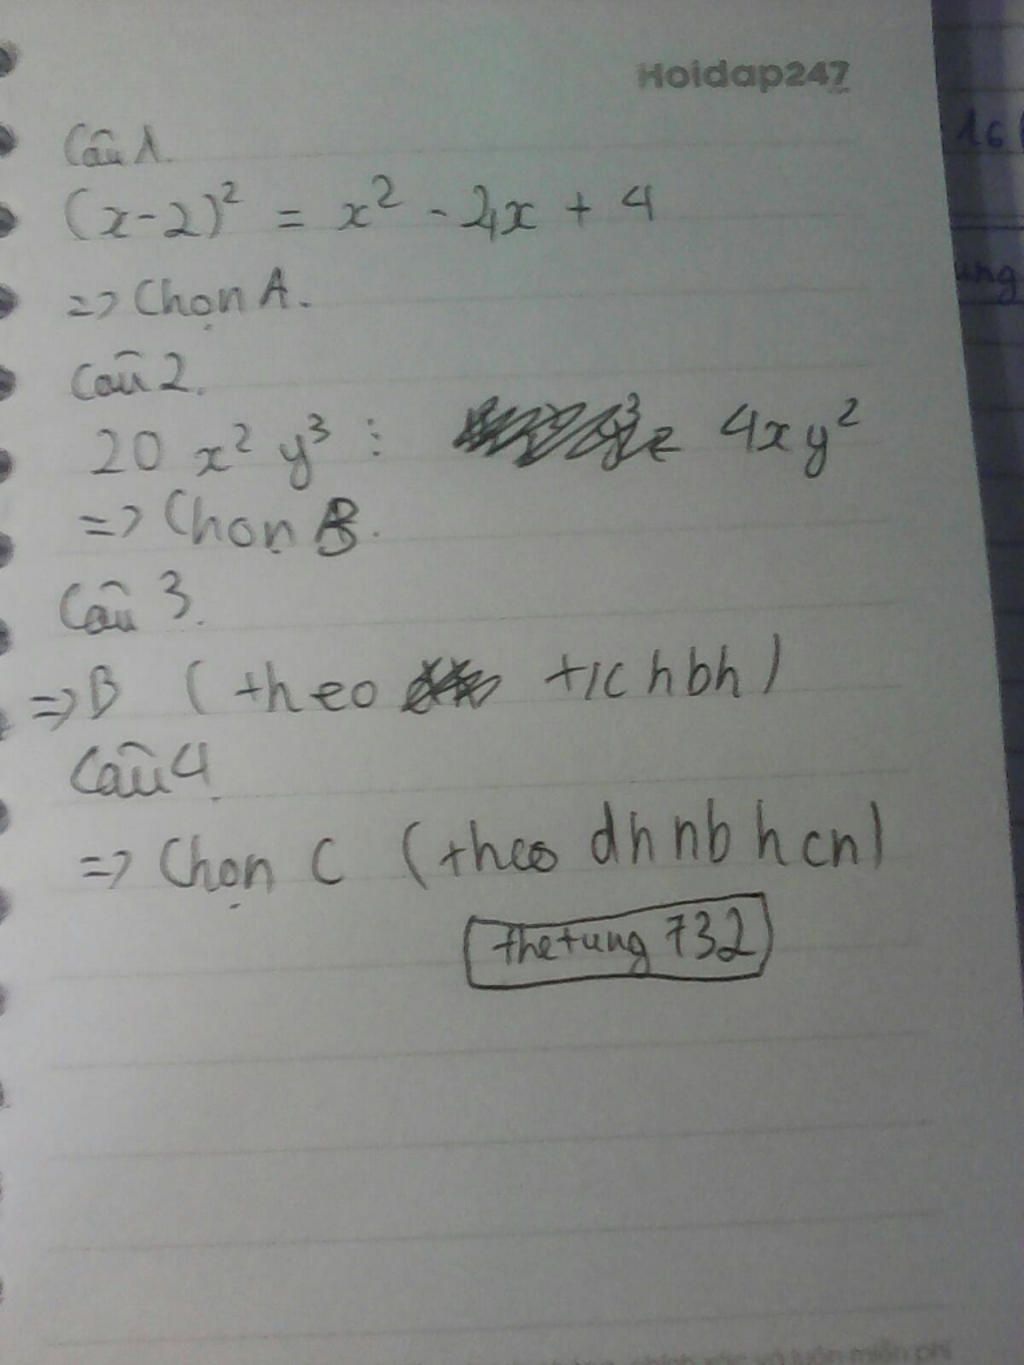 Hoidap247
Câu 1.
(x-2)² = x² - 4x + 4
=> Chọn A.
Câu 2.
20 x² y³ ⋮ 4xy²
=> Chọn B.
Câu 3.
=> B (theo t/c hbh)
Câu 4
=> Chọn C (theo dhnb hcn)
thetung 732
16
ung